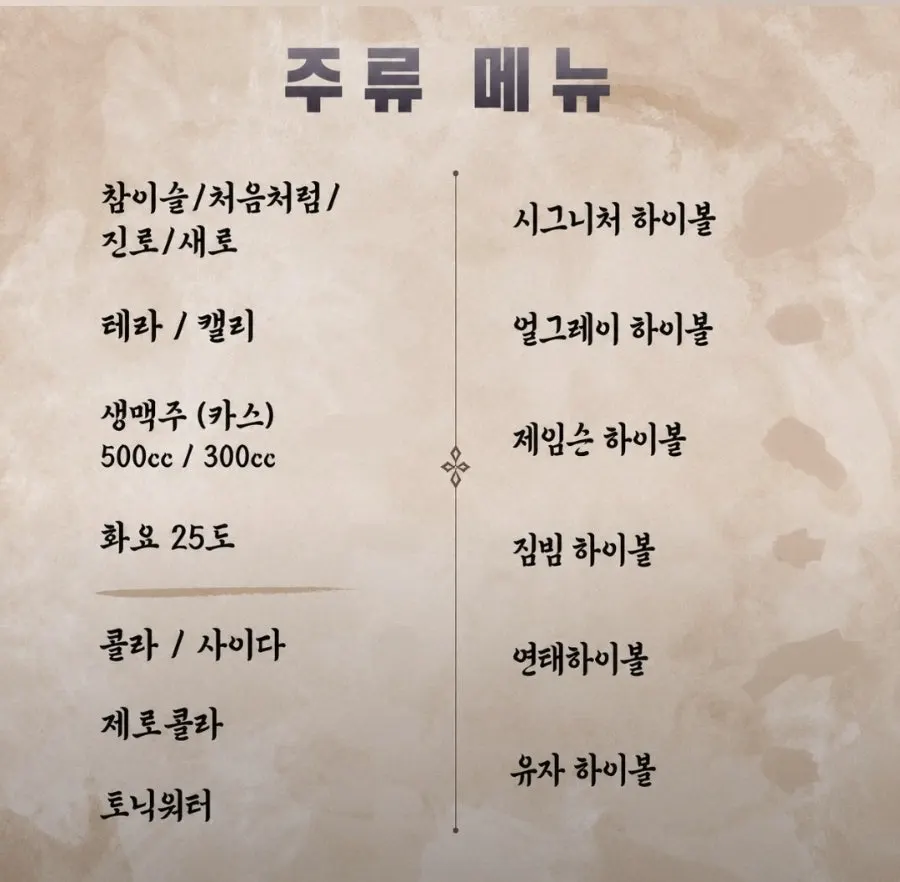 주류 메뉴
참이슬/처음처럼/
진로/새로
테라 / 캘리
생맥주 (카스)
500cc / 300cc
화요 25도
콜라 / 사이다
제로콜라
토닉워터
시그니처 하이볼
얼그레이 하이볼
제임슨 하이볼
짐빔 하이볼
연태하이볼
유자 하이볼